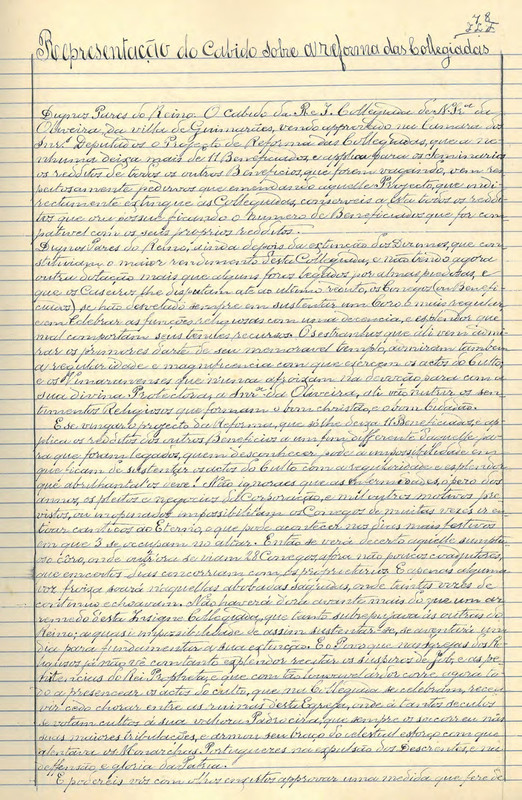 78
Representação do Cabido sobre a reforma das Collegiadas
Dignos Pares do Reino. O Cabido da R. e I. Collegiada de N. Snr.ª da
Oliveira da villa de Guimarães, vendo approvado na Camara dos
Snr.es Deputados o Projecto de Reforma das Collegiadas, que a ne-
nhuma deixa mais de 11 Beneficiados, e applica para os Seminarios
os redditos de todos os outros Beneficios, que forem vagando, vem res-
peitosamente pedir vos que emendando aquelle Projecto, que indi-
rectamente extingue as Collegiadas, conserveis a esta todos os reddi-
tos que ora possue ficando o numero de Beneficiados que for com-
pativel com os seus proprios redditos.
Dignos Pares do Reino: ainda depois da extinção dos Dizimos, que con-
stituiam o maior rendimento desta Collegiada, e não tendo agora
outra dotação mais que alguns foros legados por almas piedosas, e
que os Caseiros lhe disputam até ao ultimo recinto, os Conegos (ou Benefi-
ciados) se hão desvelado sempre em sustentar um Coro o mais regular,
com celebrar as funcções religiosas com uma decencia, e esplendor que
mal comportam seus tenues recursos. Os estranhos que ali vem admi-
rar os primores da arte de seu memoravel templo, admiram tambem
a regularidade e magnificencia com que exercem os actos do Culto,
e os Vimaranenses que nunca afroixam na devoção para com a
sua divina Protectora, a Snr.ª da Oliveira, ali vão nutrir os sen-
timentos Religiosos que formam o bom christão, e o bom Cidadão.
E se vingar o projecto da Reforma, que só lhe deixa 11 Beneficiados, e ap-
plica os redditos dos outros Beneficios a um fim differente daquelle pa-
ra que foram legados, quem desconhecer pode a impossibilidade em
que ficam de sustentar os actos do Culto com a regularidade e esplendor
que abrilhantal-os deve? Não ignoraes que as enfermidades, o pezo dos
annos, os pleitos e negocios da Corporação, e mil outros motivos pre-
vistos, ou inopinados impossibilitam os Conegos de muitas vezes ir en-
toar canticos ao Eterno, o que pode acontecer nos dias mais festivos
em que 3 se occupam no altar. Então se verá deserto aquelle sumptuo-
so côro, onde outr'ora se viam 28 Conegos, afora não poucos coadjutores,
que em certos dias concorriam com os proprietarios. E apenas alguma
voz froixa soará naquellas abobadas sagradas, onde tantas vozes de
continuo echoavam. Não haverá dora avante mais do que um ar-
remedo desta Insigne Collegiada, que tanto sobrepujava as outras do
Reino; a quasi impossibilidade de assim sustentar-se, se aventará um
dia para fundamentar a sua extincção. E o Povo que nas igrejas dos Re-
ligiosos já não vê com tanto esplendor recitar os suspiros de Job, e as pe-
nitencias do Rei Propheta, e que com tão louvavel ardor corre agora to-
do a presencear os actos do culto, que na Collegiada se celebram, recea
vir cedo chorar entre as ruinas desta Egreja, onde à tantos seculos
se votam cultos á sua melhor Padroeira, que sempre os soccorreu nas
suas maiores tribulações, e armou seu braço do celestial esforço com que
alentaira os Monarchas Portuguezes na expulsão dos Descrentes, e na
deffensão, e gloria da Patria.
E podereis vós com olhos enxutos approvar uma medida que fere de